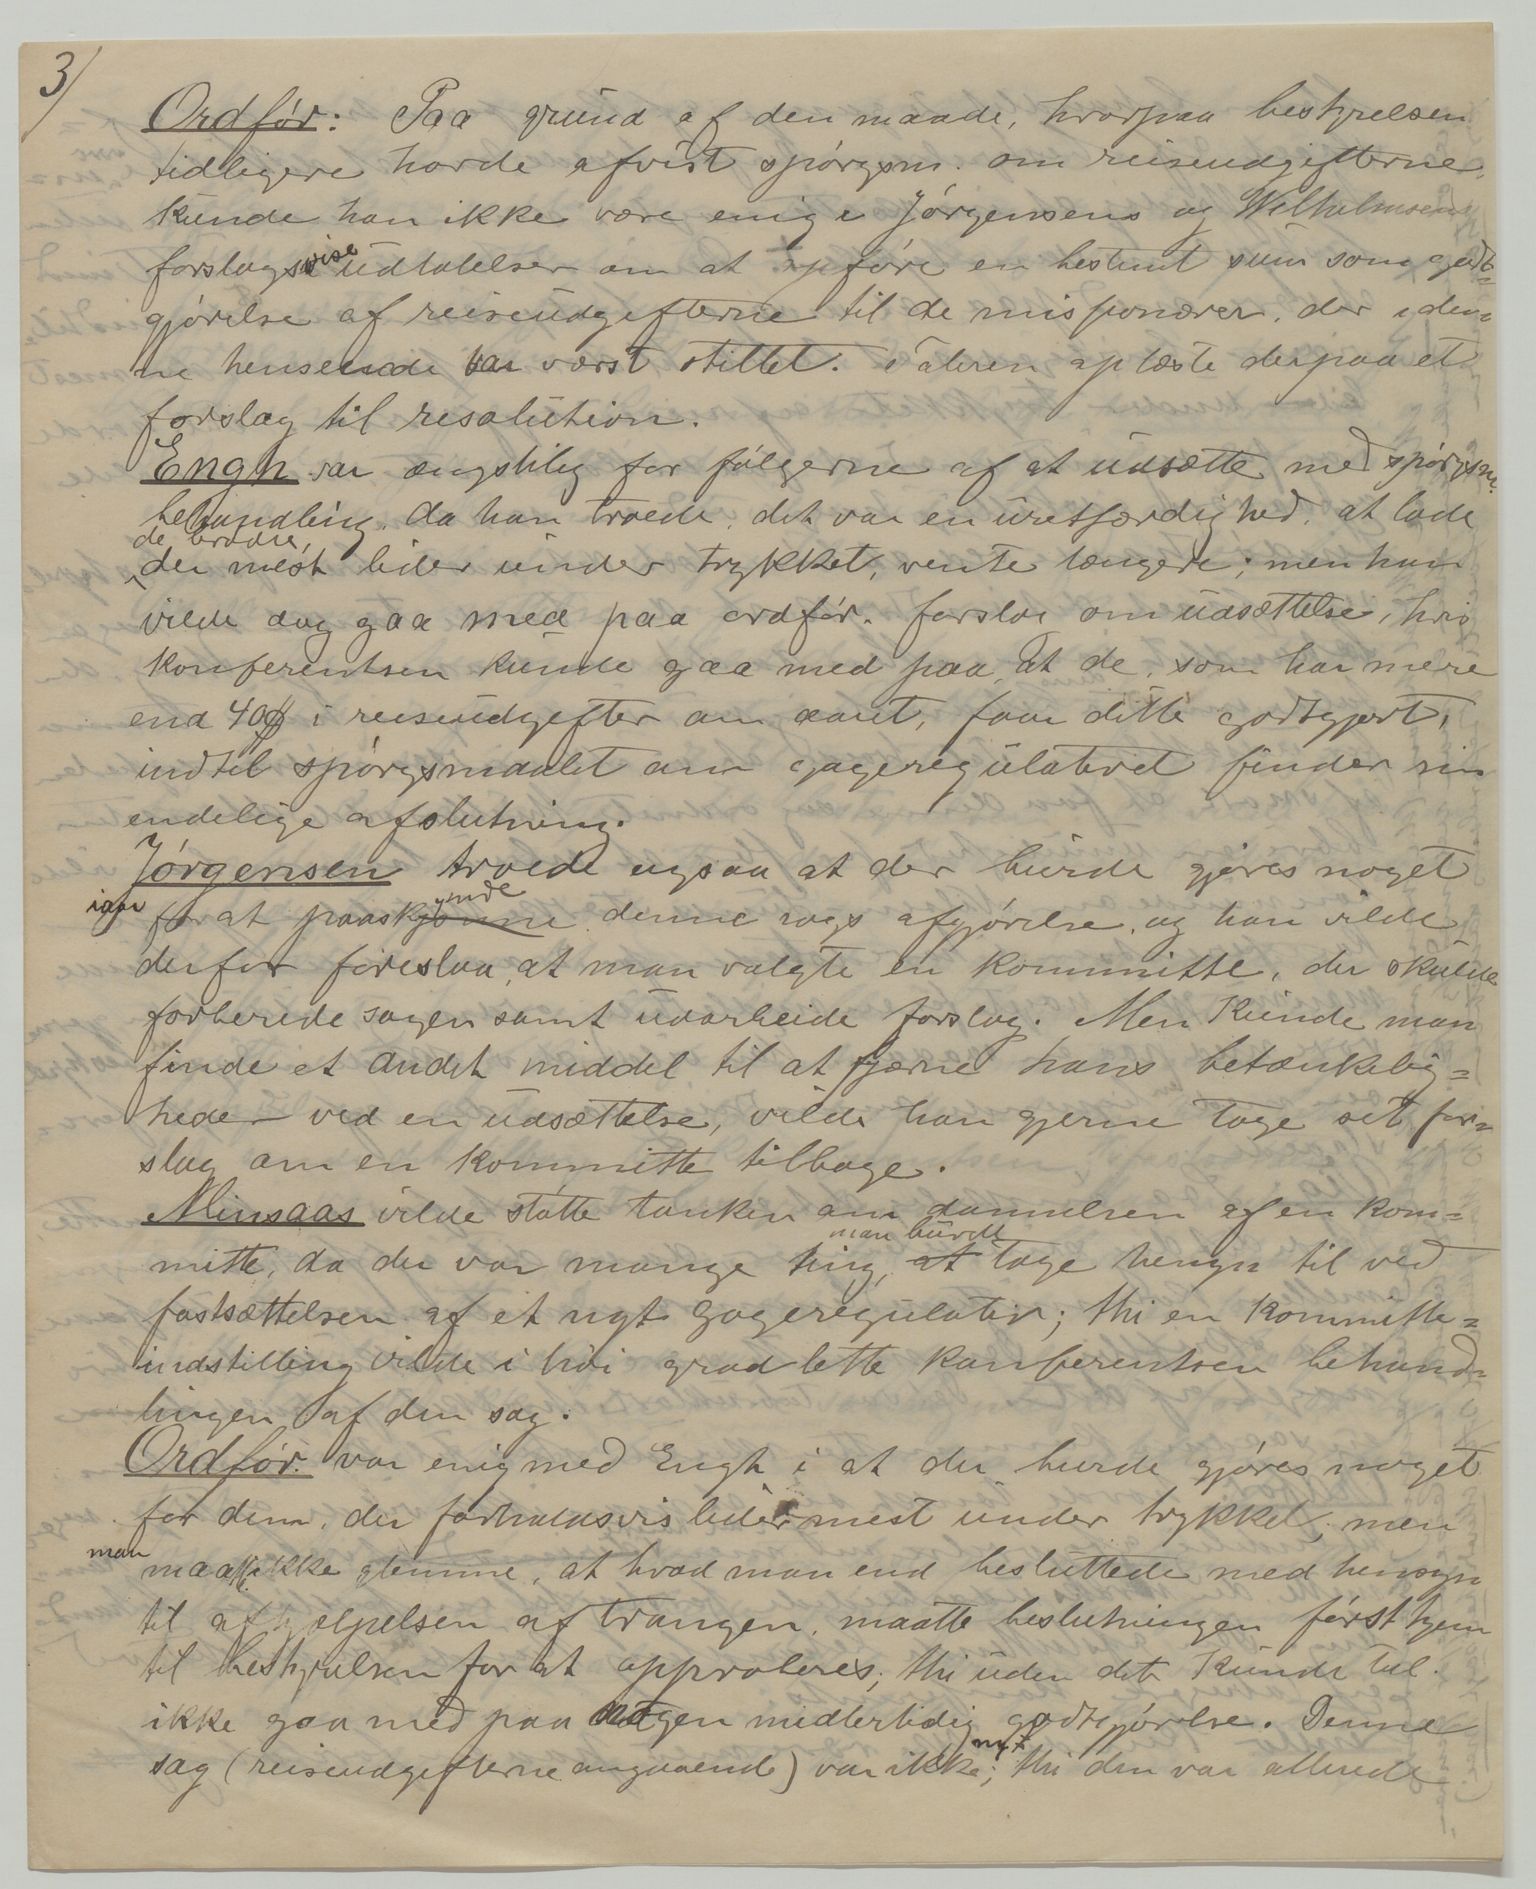 3/
Ordfør: Paa grund af den maade, hvorpaa bestyrelsen
tidligere havde afvist spørgsm. om reiseudgifterne,
kunde han ikke være enig i Jørgensens og Wilhelmsens
forslagsvise udtalelser om at opføre en bestemt sum som godt-
gjørelse af reiseudgifterne til de missionærer, der i den-
ne henseende var værst stillet. Taleren oplæste derpaa et
forslag til resolution.
Engh var ængstelig for følgerne af at udsætte med spørgsm.
behandling, da han troede, det var en uretfærdighed, at lade
de brødre,
der mest lider under trykket, vente længere; men han
vilde dog gaa med paa ordfør. forslag om udsættelse, hvis
konferentsen kunde gaa med paa, at de, som har mere
end 40 $ i reiseudgifter om aaret, faar dette godtgjort,
indtil spørgsmaalet om gageregulativet finder sin
endelige afslutning.
Jørgensen troede ogsaa at der burde gjøres noget
iaar for at paaskynde denne sags afgjørelse, og han vilde
derfor foreslaa, at man valgte en kommitte, der skulde
forberede sagen samt udarbeide forslag. Men kunde man
finde et andet middel til at fjærne hans betænkelig-
heder ved en udsættelse, vilde han gjerne tage sit for-
slag om en kommitte tilbage.
Minsaas vilde støtte tanken om dannelsen af en kom-
man burde
mitte, da der var mange ting, at tage hensyn til ved
fastsættelsen af et nyt gageregulativ; thi en kommitte-
indstilling vilde i høi grad lette konferentsen behand-
lingen af den sag.
Ordfør. var enig med Engh i at der burde gjøres noget
for dem, der forholdsvis lider mest under trykket; men
man maa ikke glemme, at hvad man end besluttede med hensyn
til afhjælpelsen af trangen, maatte beslutningen først hjem
til bestyrelsen for at approberes; thi uden det kunde tal.
ikke gaa med paa nogen midlertidig godtgjørelse. Denne
sag (reiseudgifterne angaaende) var ikke nyt; thi den var allerede